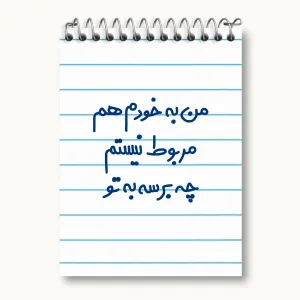 من به خودم هم
مربوط نیستم
چه برسه به تو